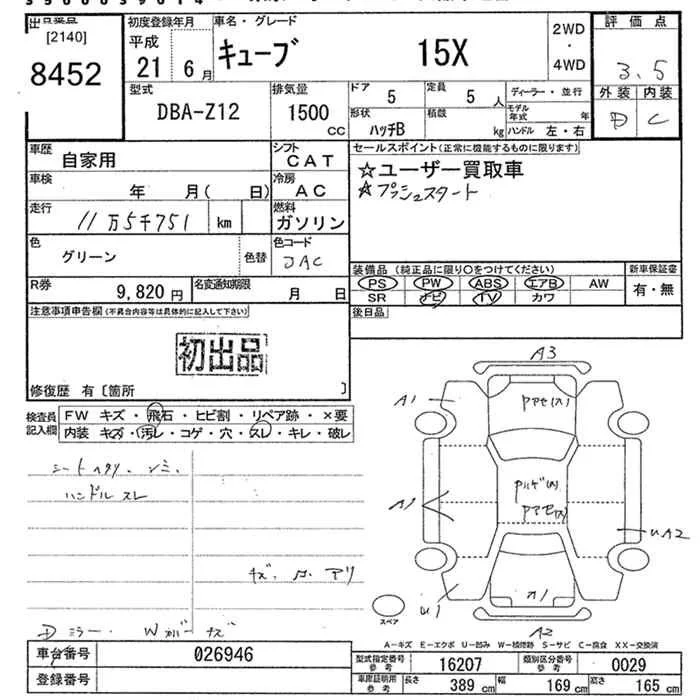 出品票
[2140]
8452
初度登録年月
平成
21年 6月
車名・グレード
キューブ 15X
2WD
・
4WD
評価点
3.5
外装 内装
D C
型式
DBA-Z12
排気量
1500
CC
ドア
5
定員
5 人
ディーラー・並行
形状
ハッチB
積載
kg
モデル年式 年
ハンドル 左・右
車歴
自家用
シフト
CAT
セールスポイント(正常に機能するものに限ります)
☆ユーザー買取車
☆プッシュスタート
車検
年 月( 日)
冷房
AC
走行
11万5千751 km
燃料
ガソリン
色
グリーン
色替
色コード
JAC
装備品(純正品に限り○をつけてください)
新車保証書
PS PW ABS エアB AW
有・無
SR ナビ TV カワ
R券
9,820円
名変通知期限
月 日
後日品
注意事項申告欄(不具合内容等は具体的に記入して下さい)
初出品
修復歴 有〔箇所 〕
検査員記入欄
FW キズ・飛石・ヒビ割・リペア跡・×要
内装 キズ・汚レ・コゲ・穴・スレ・キレ・破レ
ハンドル スレ
D ミラー、Wカバーキズ
A3
A1
A2
U1
A1
UA2
A2
スペア
A-キズ E-エクボ U-凹み W-補修跡 S-サビ C-腐食 XX-交換済
車台番号
026946
登録番号
型式指定番号
参考
16207
類別区分番号
参考
0029
車庫証明用
参考
長さ
389 cm
幅
169 cm
高さ
165 cm